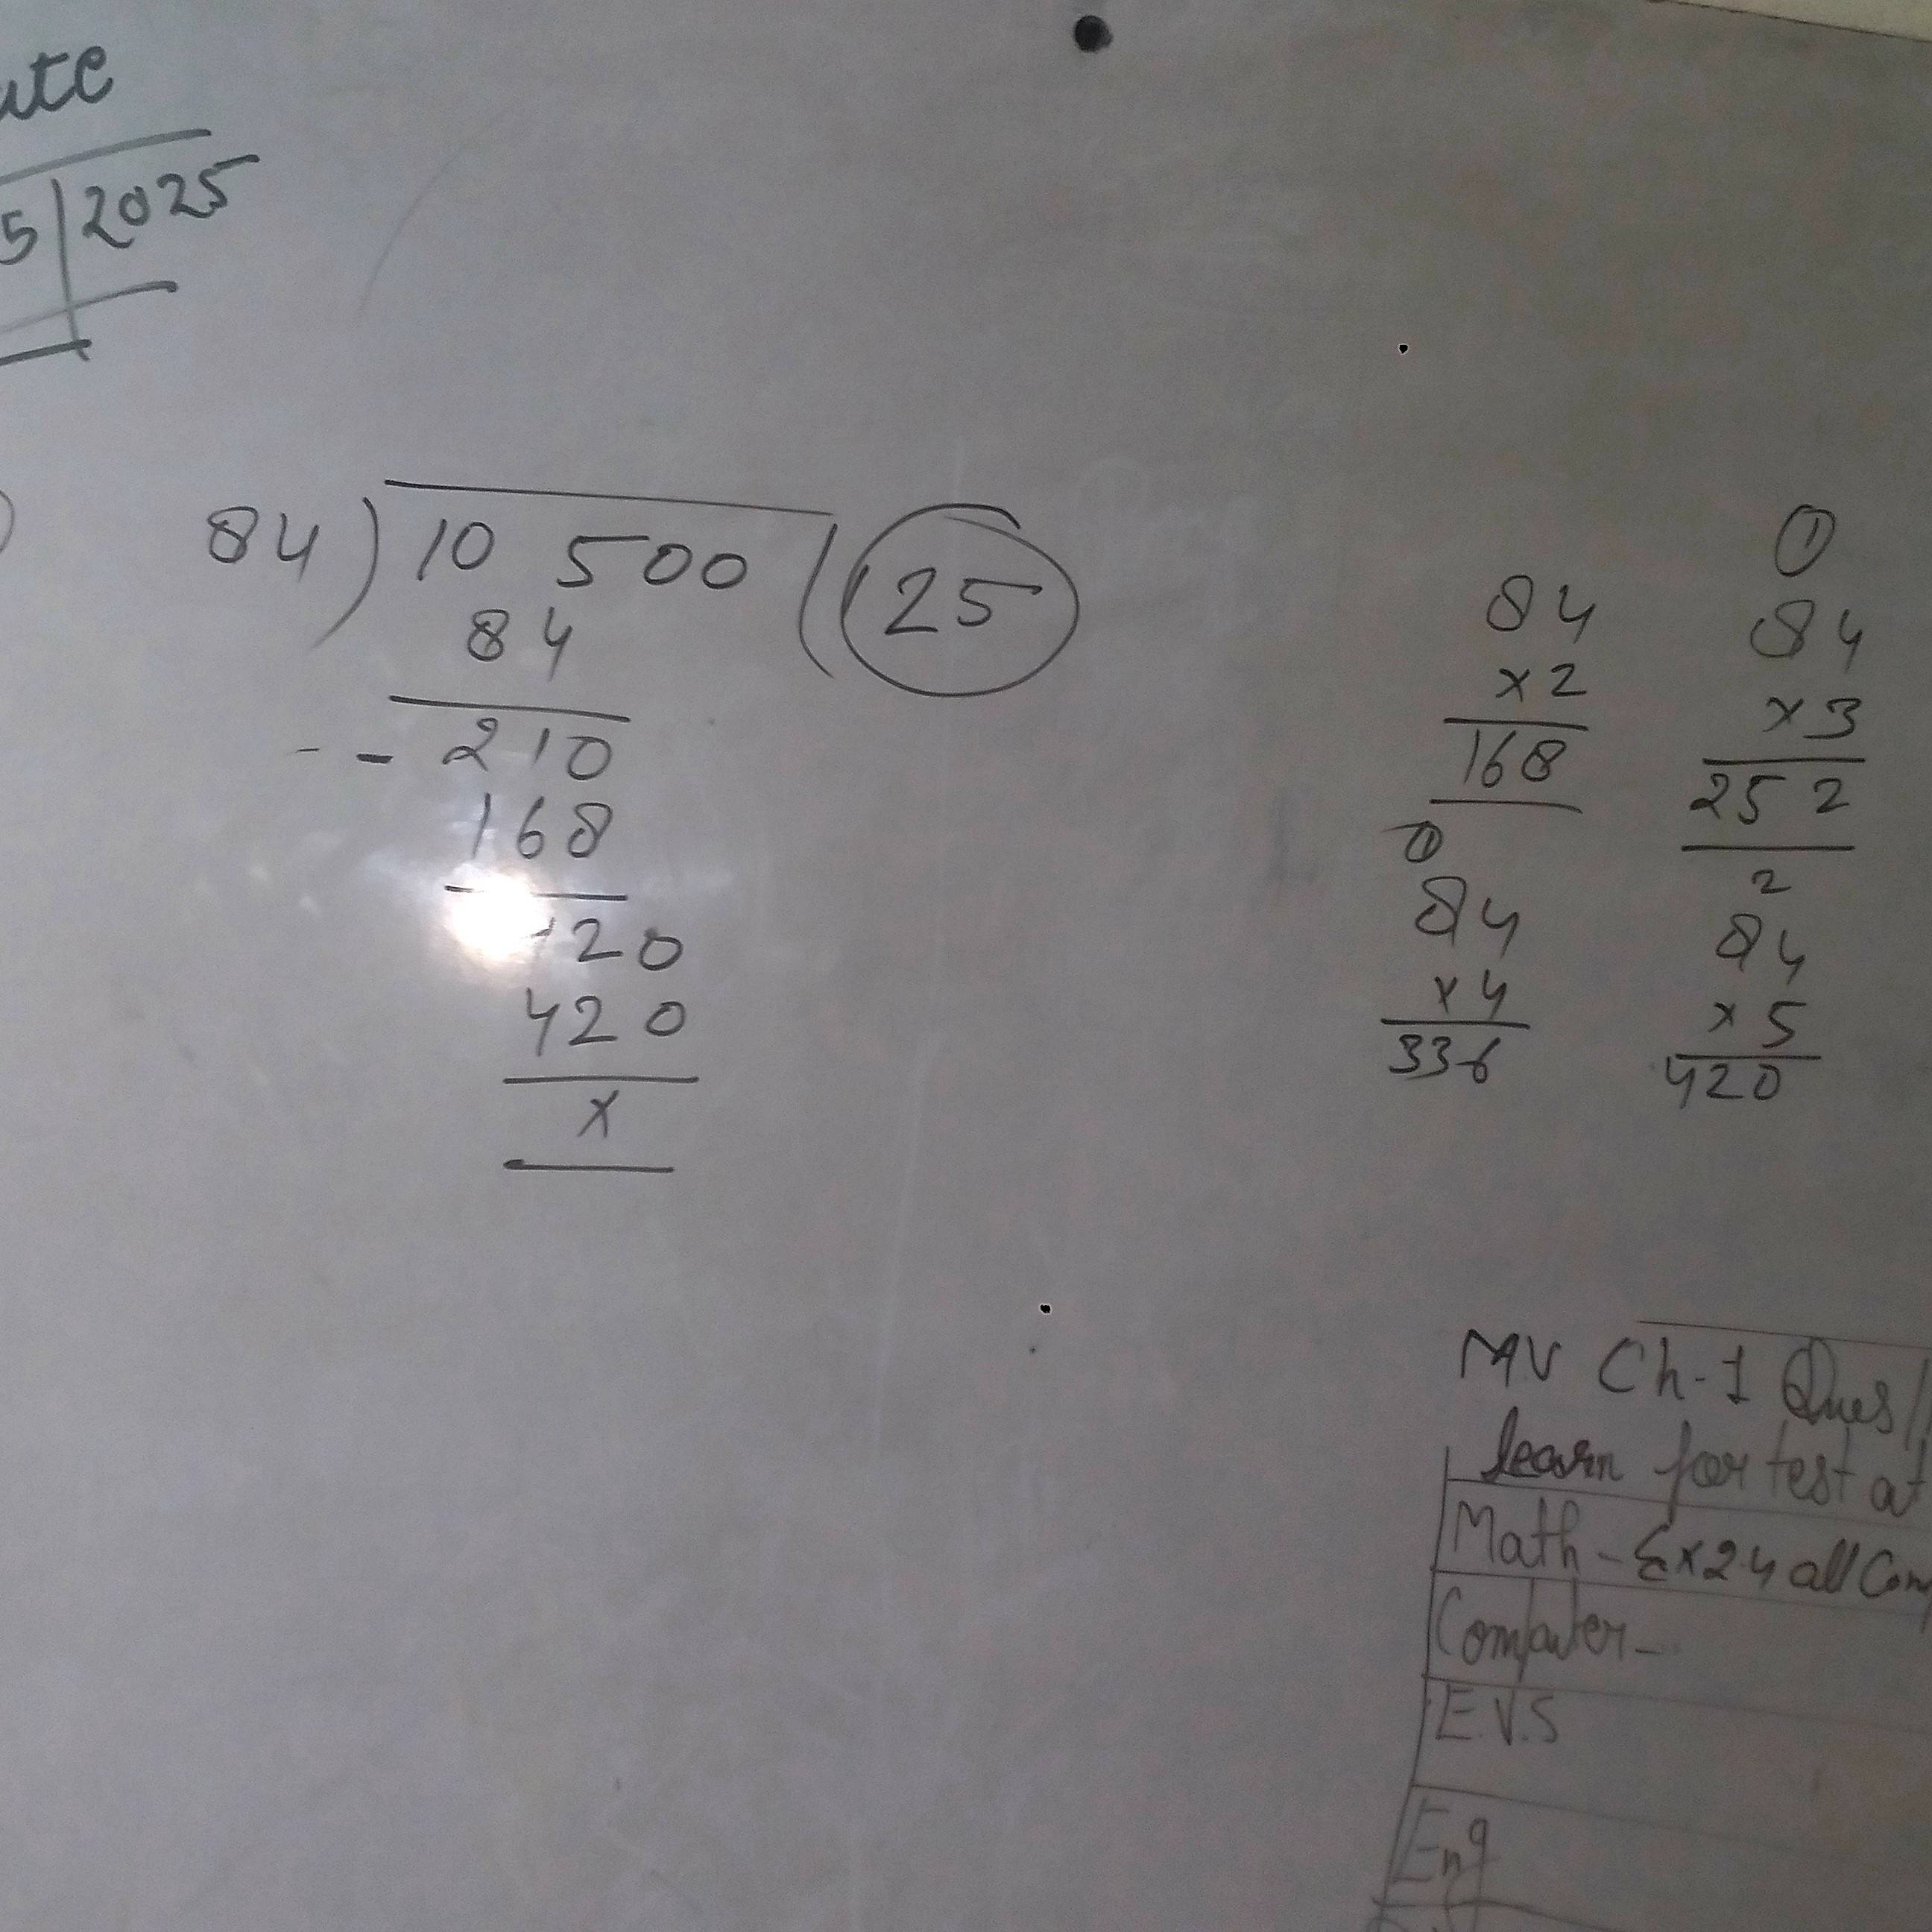 5/2025
84)10 500(125
84
- - 210
168
420
420
x
84
x2
168
1
84
x3
252
1
84
x4
336
2
84
x5
420
MV Ch-1 Ques
learn for test at
Math - Ex 2.4 all
Computer -
E.V.S
Eng